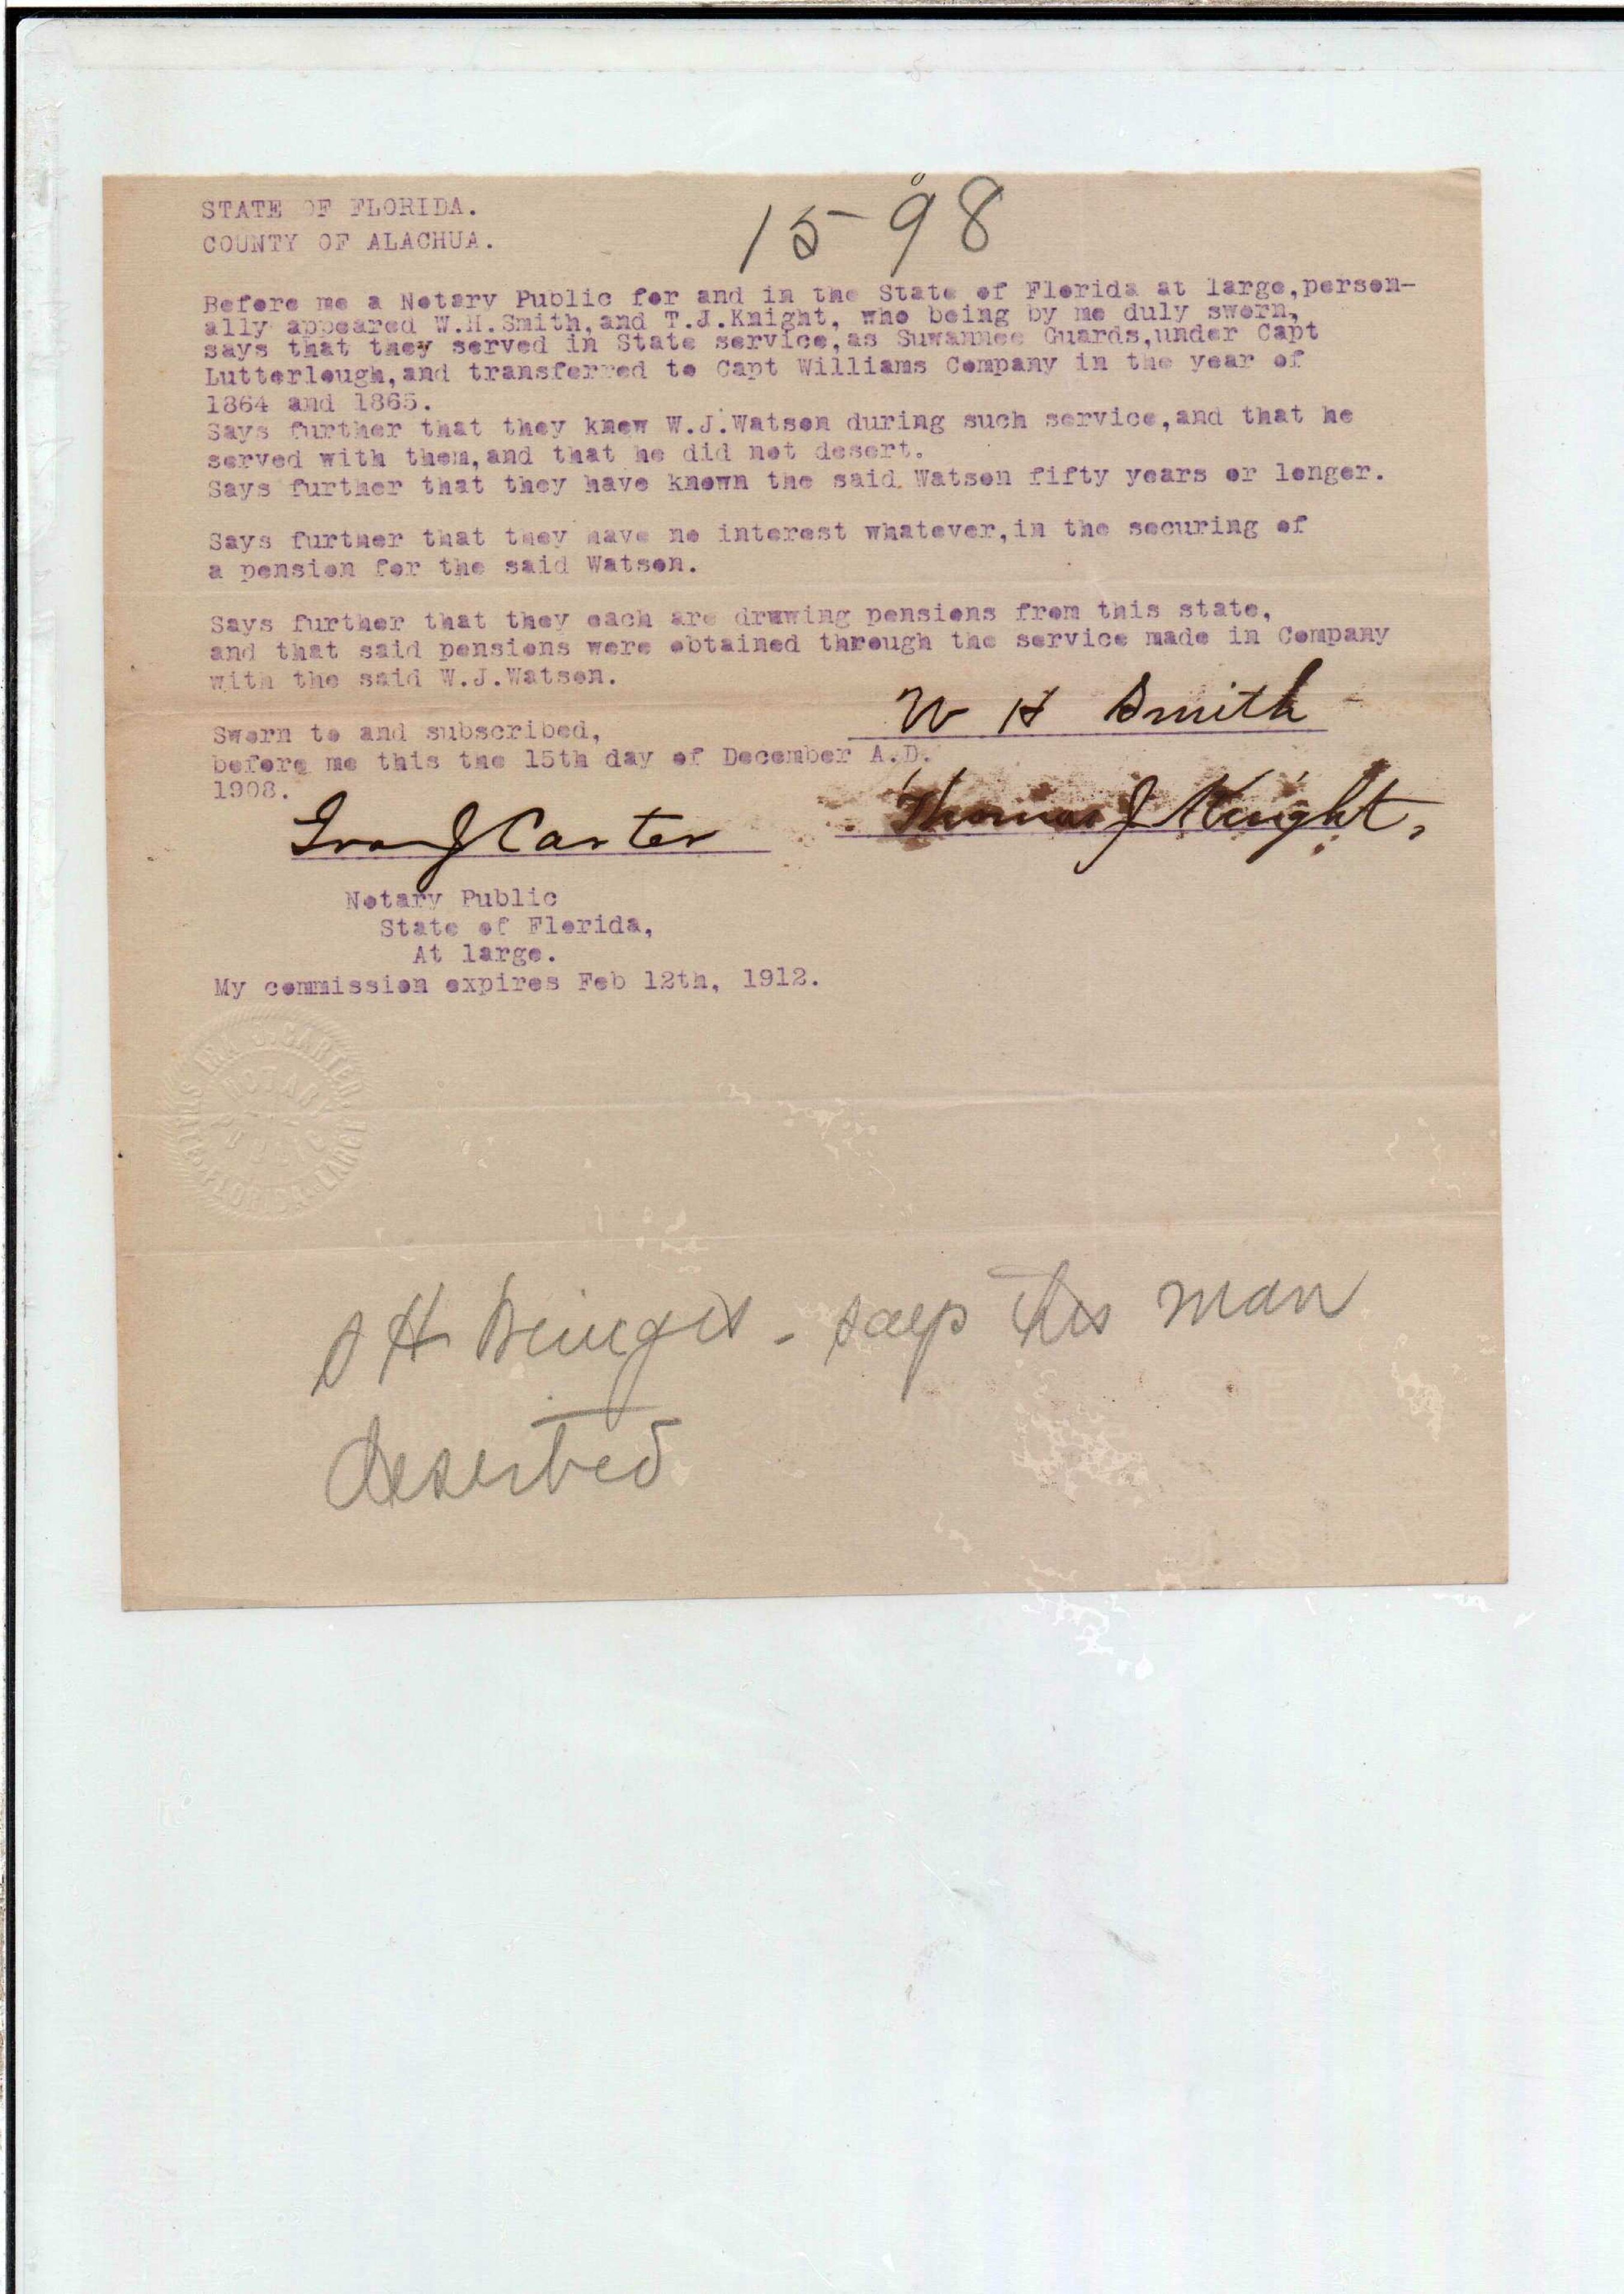 1598
STATE OF FLORIDA.
COUNTY OF ALACHUA.
Before me a Notary Public for and in the State of Florida at large,person-
ally appeared W.H.Smith,and T.J.Knight, who being by me duly sworn,
says that they served in State service,as Suwannee Guards,under Capt
Lutterlough,and transferred to Capt Williams Company in the year of
1864 and 1865.
Says further that they knew W.J.Watson during such service,and that he
served with them,and that he did not desert.
Says further that they have known the said Watson fifty years or longer.
Says further that they have no interest whatever,in the securing of
a pension for the said Watson.
Says further that they each are drawing pensions from this state,
and that said pensions were obtained through the service made in Company
with the said W.J.Watson.
W H Smith
Sworn to and subscribed,
before me this the 15th day of December A.D.
1908.
Thomas J Knight.
Ira J Carter
Notary Public
State of Florida,
At large.
My commission expires Feb 12th, 1912.
IRA J. CARTER.
NOTARY
PUBLIC
STATE FLORIDA LARGE
S H - says this man
deserted